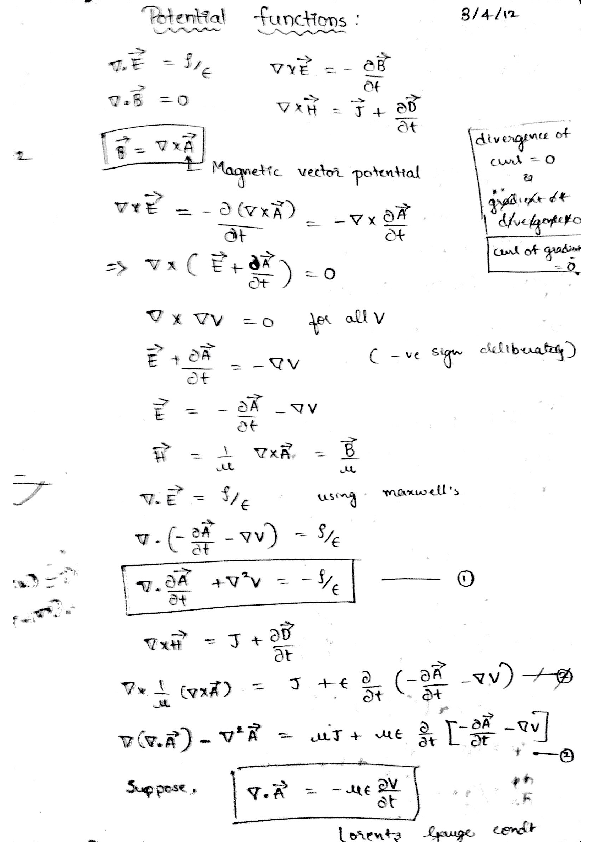 Potential functions : 3/4/12
∇.E⃗ = ρ/ε ∇×E⃗ = - ∂B⃗/∂t
∇.B⃗ = 0 ∇×H⃗ = J⃗ + ∂D⃗/∂t
B⃗ = ∇×A⃗
Magnetic vector potential
divergence of
curl = 0
&
curl of gradient
= 0
2
∇×E⃗ = - ∂(∇×A⃗)/∂t = -∇× ∂A⃗/∂t
⇒ ∇×( E⃗ + ∂A⃗/∂t ) = 0
∇ × ∇V = 0 for all V
E⃗ + ∂A⃗/∂t = -∇V ( -ve sign deliberately)
E⃗ = - ∂A⃗/∂t - ∇V
H⃗ = 1/μ ∇×A⃗ = B⃗/μ
∇.E⃗ = ρ/ε using maxwell's
∇.(-∂A⃗/∂t - ∇V) = ρ/ε
∇.∂A⃗/∂t + ∇²V = -ρ/ε —— ①
∇×H⃗ = J + ∂D⃗/∂t
∇× 1/μ (∇×A⃗) = J + ε ∂/∂t (-∂A⃗/∂t - ∇V)
∇(∇.A⃗) - ∇²A⃗ = μJ + με ∂/∂t [-∂A⃗/∂t - ∇V] —②
Suppose, ∇.A⃗ = -με ∂V/∂t
Lorentz Gauge condt